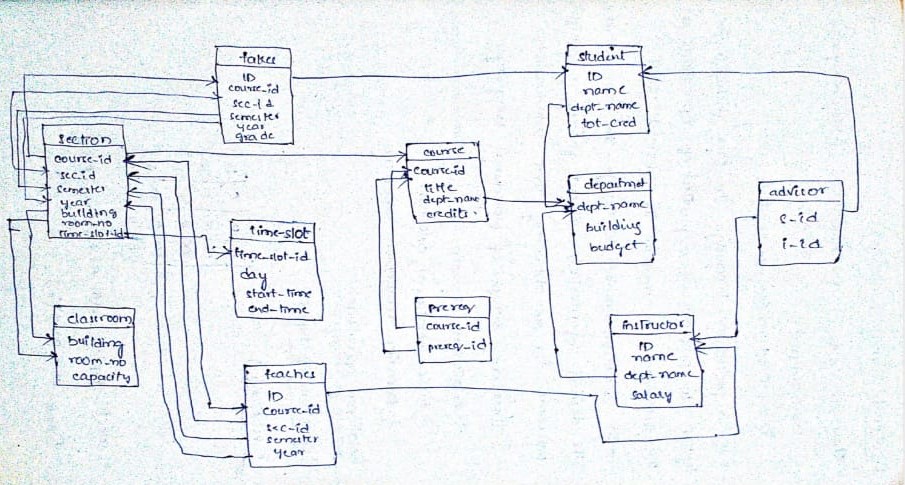 takes
ID
course-id
sec-id
semester
year
grade
student
ID
name
dept-name
tot-cred
section
course-id
sec.id
semester
year
building
room-no
time-slot-id
course
course-id
title
dept-name
credits
departmet
dept-name
building
budget
advisor
s-id
i-id
time-slot
time-slot-id
day
start-time
end-time
classroom
building
room-no
capacity
prereq
course-id
prereq-id
instructor
ID
name
dept-name
salary
teaches
ID
course-id
sec-id
semester
year